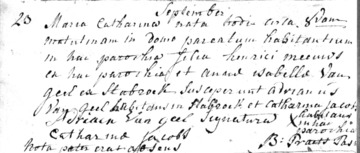 September
23 Maria Catharina nata hodie circa 8vam
matutinam in domo parentum habitantium
in hac parochia filia henrici meeuws
ex hac parochia et anna isabella Van
geel ex Stabroek Susceperunt adrianus
Van geel habitans in Stabroek et Catharina Jacobs
habitans
in hac
parochia
Adriaen Van geel Signatura
Catharina Jacobs
nota pater erat absens B: Praets Pas